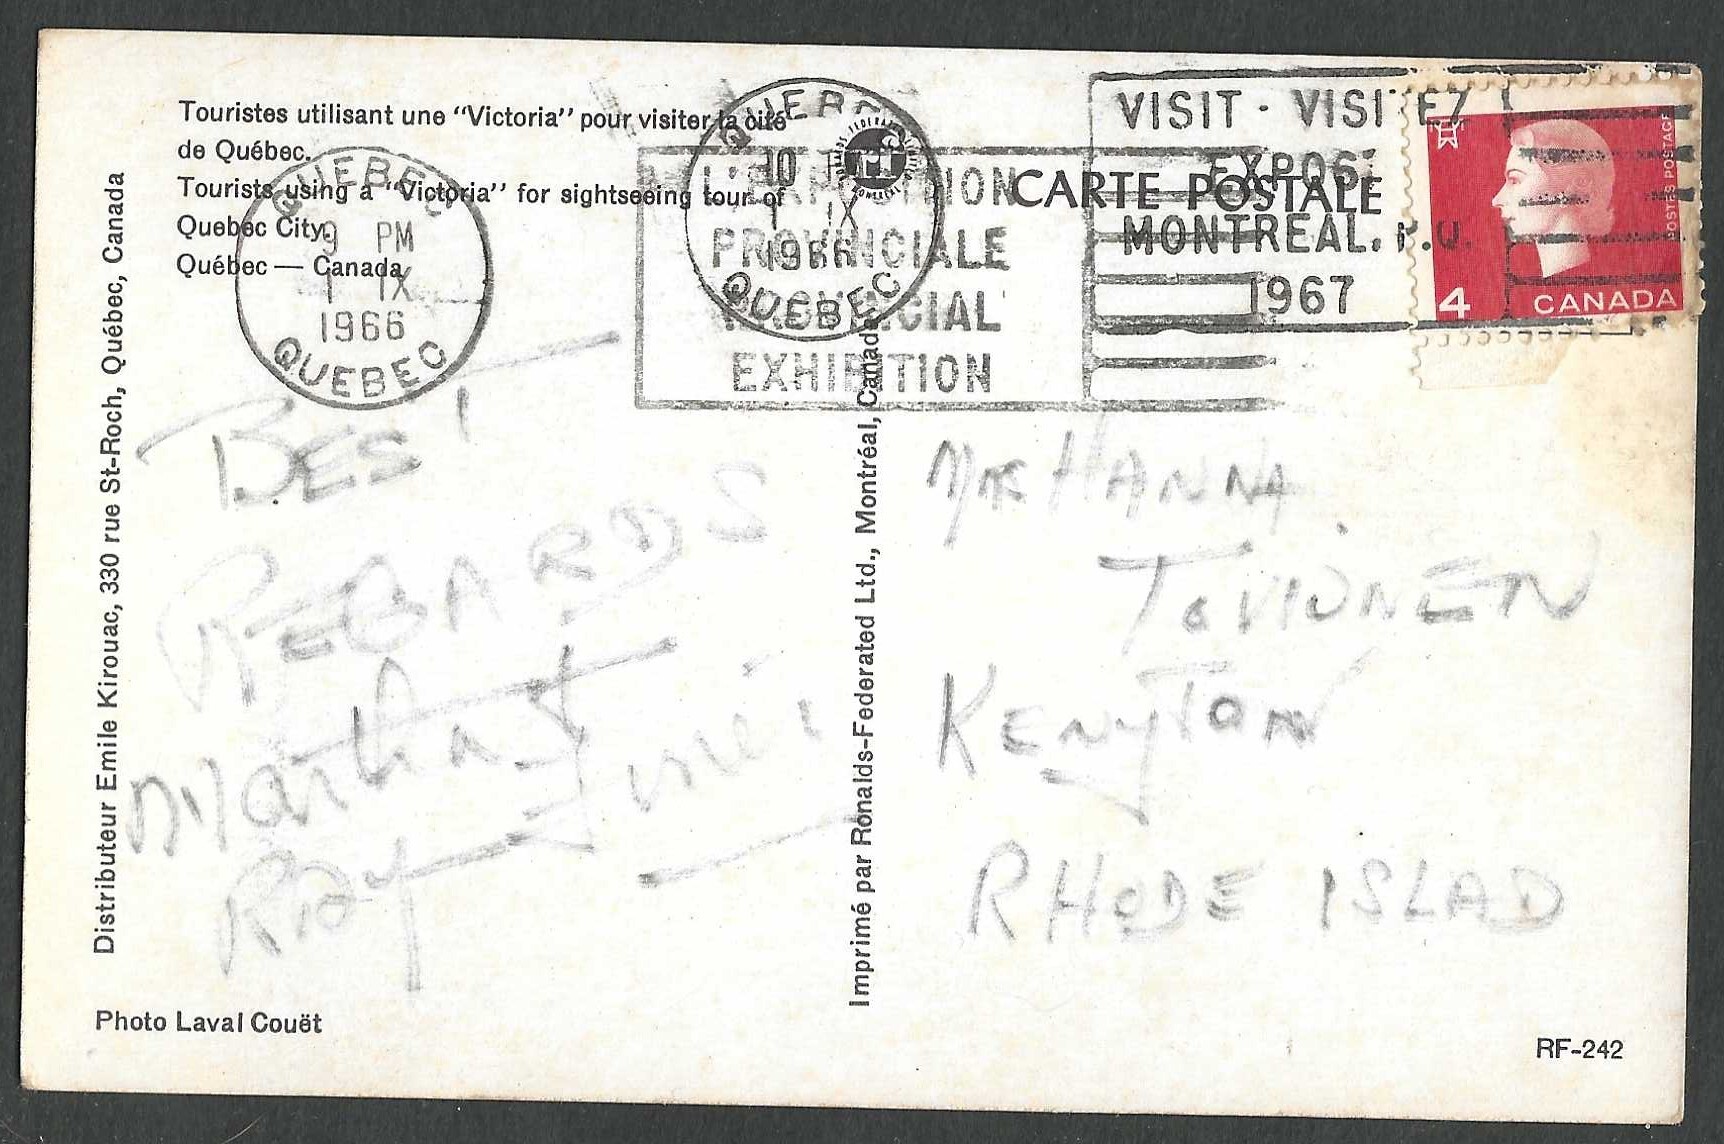 Touristes utilisant une "Victoria" pour visiter la cité
de Québec.
Tourists using a "Victoria" for sightseeing tour of
Quebec City.
Québec — Canada
QUEBEC
9 PM
1 IX
1966
QUEBEC
QUEBEC
10
1 IX
1966
QUEBEC
L'EXPOSITION
PROVINCIALE
PROVINCIAL
EXHIBITION
VISIT - VISITEZ
EXPO67
MONTREAL, P.Q.
1967
CARTE POSTALE
POSTES POSTAGE
4 CANADA
Distributeur Emile Kirouac, 330 rue St-Roch, Québec, Canada
Imprimé par Ronalds-Federated Ltd., Montréal, Canada
BEST
REGARDS
Martha
Ray
HANNA
KENYTON
RHODE ISLAD
Photo Laval Couët
RF-242